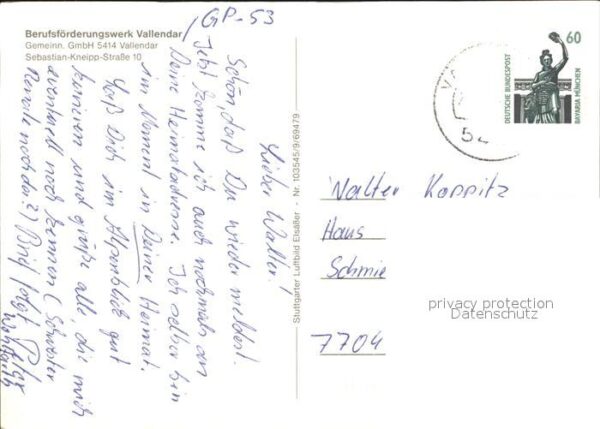 Berufsförderungswerk Vallendar
Gemeinn. GmbH 5414 Vallendar
Sebastian-Kneipp-Straße 10
GP-53
Lieber Walter!
Schön, daß Du wieder meldest.
Jetzt komme ich auch nochmals an
Deine Heimatadresse. Ich selber bin
im Moment in Deiner Heimat.
Laß Dich im Alpenblick gut
kurieren und grüße alle, die mich
eventuell noch kennen (Schwester
Renate noch da?) Brief folgt.
Stuttgarter Luftbild Elsäßer - Nr. 103545/9/69479
60
DEUTSCHE BUNDESPOST
BAVARIA MÜNCHEN
54
Walter Koppitz
Haus
Schmie
7704
privacy protection
Datenschutz